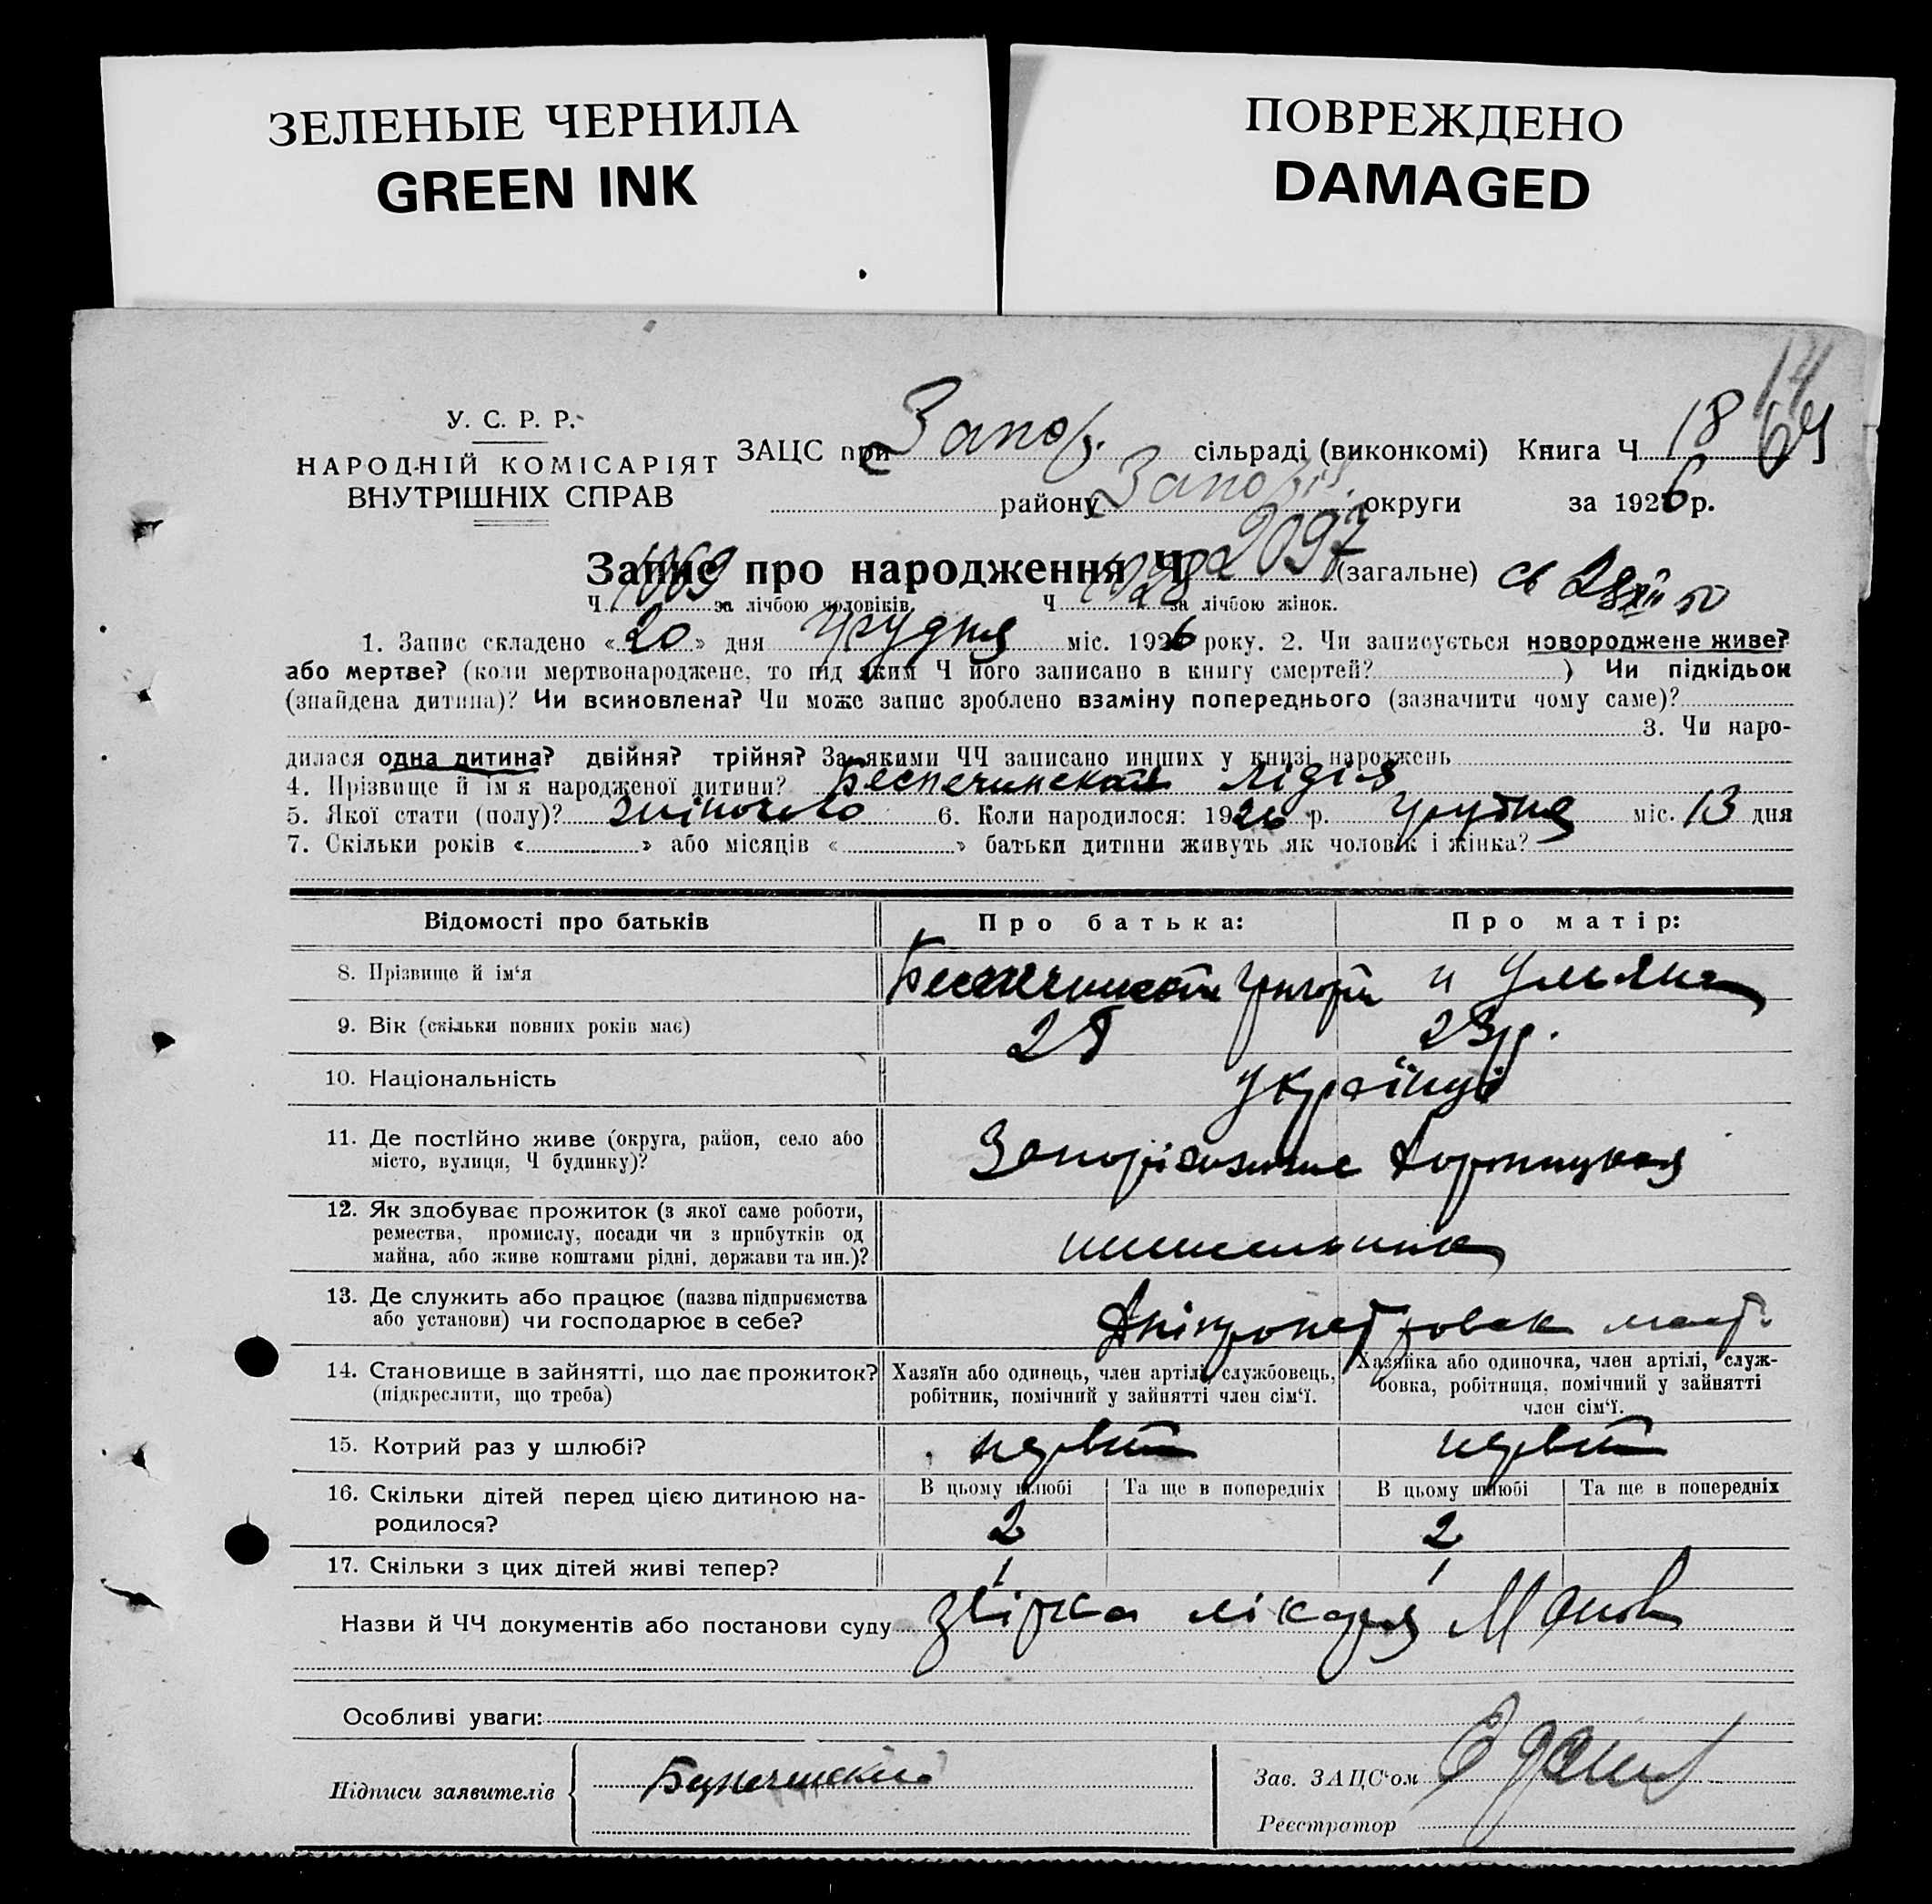 ЗЕЛЕНЫЕ ЧЕРНИЛА
GREEN INK
ПОВРЕЖДЕНО
DAMAGED
14
У. С. Р. Р.
НАРОДНІЙ КОМІСАРІЯТ
ВНУТРІШНІХ СПРАВ
ЗАЦС при Запор. сільраді (виконкомі) Книга Ч 18
району Запоріз. округи за 1926 р.
Запис про народження Ч 2097 (загальне) св 28 XII 50
Ч 1069 за лічбою чоловіків. Ч 1028 за лічбою жінок.
1. Запис складено «20» дня Грудня міс. 1926 року. 2. Чи записується новороджене живе?
або мертве? (коли мертвонароджене, то під яким Ч його записано в книгу смертей? ) Чи підкідьок
(знайдена дитина)? Чи всиновлена? Чи може запис зроблено взаміну попереднього (зазначити чому саме)?
3. Чи наро-
дилася одна дитина? двійня? трійня? За якими ЧЧ записано инших у книзі народжень
4. Прізвище й ім'я народженої дитини? Беспечинская Лідія
5. Якої стати (полу)? жіночого 6. Коли народилося: 1926 р. грудня міс. 13 дня
7. Скільки років « » або місяців « » батьки дитини живуть як чоловік і жінка?
Відомості про батьків Про батька: Про матір:
8. Прізвище й ім'я Беспечинский Григорій и Ульяна
9. Вік (скільки повних років має) 25 23 р.
10. Національність Українці
11. Де постійно живе (округа, район, село або
місто, вулиця, Ч будинку)?
12. Як здобуває прожиток (з якої саме роботи,
ремества, промислу, посади чи з прибутків од
майна, або живе коштами рідні, держави та ин.)?
13. Де служить або працює (назва підприємства
або установи) чи господарює в себе?
14. Становище в зайнятті, що дає прожиток?
(підкреслити, що треба)
Хазяїн або одинець, член артілі, службовець,
робітник, помічний у зайнятті член сім'ї.
Хазяйка або одиночка, член артілі, служ-
бовка, робітниця, помічний у зайнятті
член сім'ї.
15. Котрий раз у шлюбі? первий первий
16. Скільки дітей перед цією дитиною на-
родилося?
В цьому шлюбі Та ще в попередніх В цьому шлюбі Та ще в попередніх
2 2
17. Скільки з цих дітей живі тепер? 1 1
Назви й ЧЧ документів або постанови суду лікаря
Особливі уваги:
Підписи заявителів
Зав. ЗАЦС'ом
Реєстратор